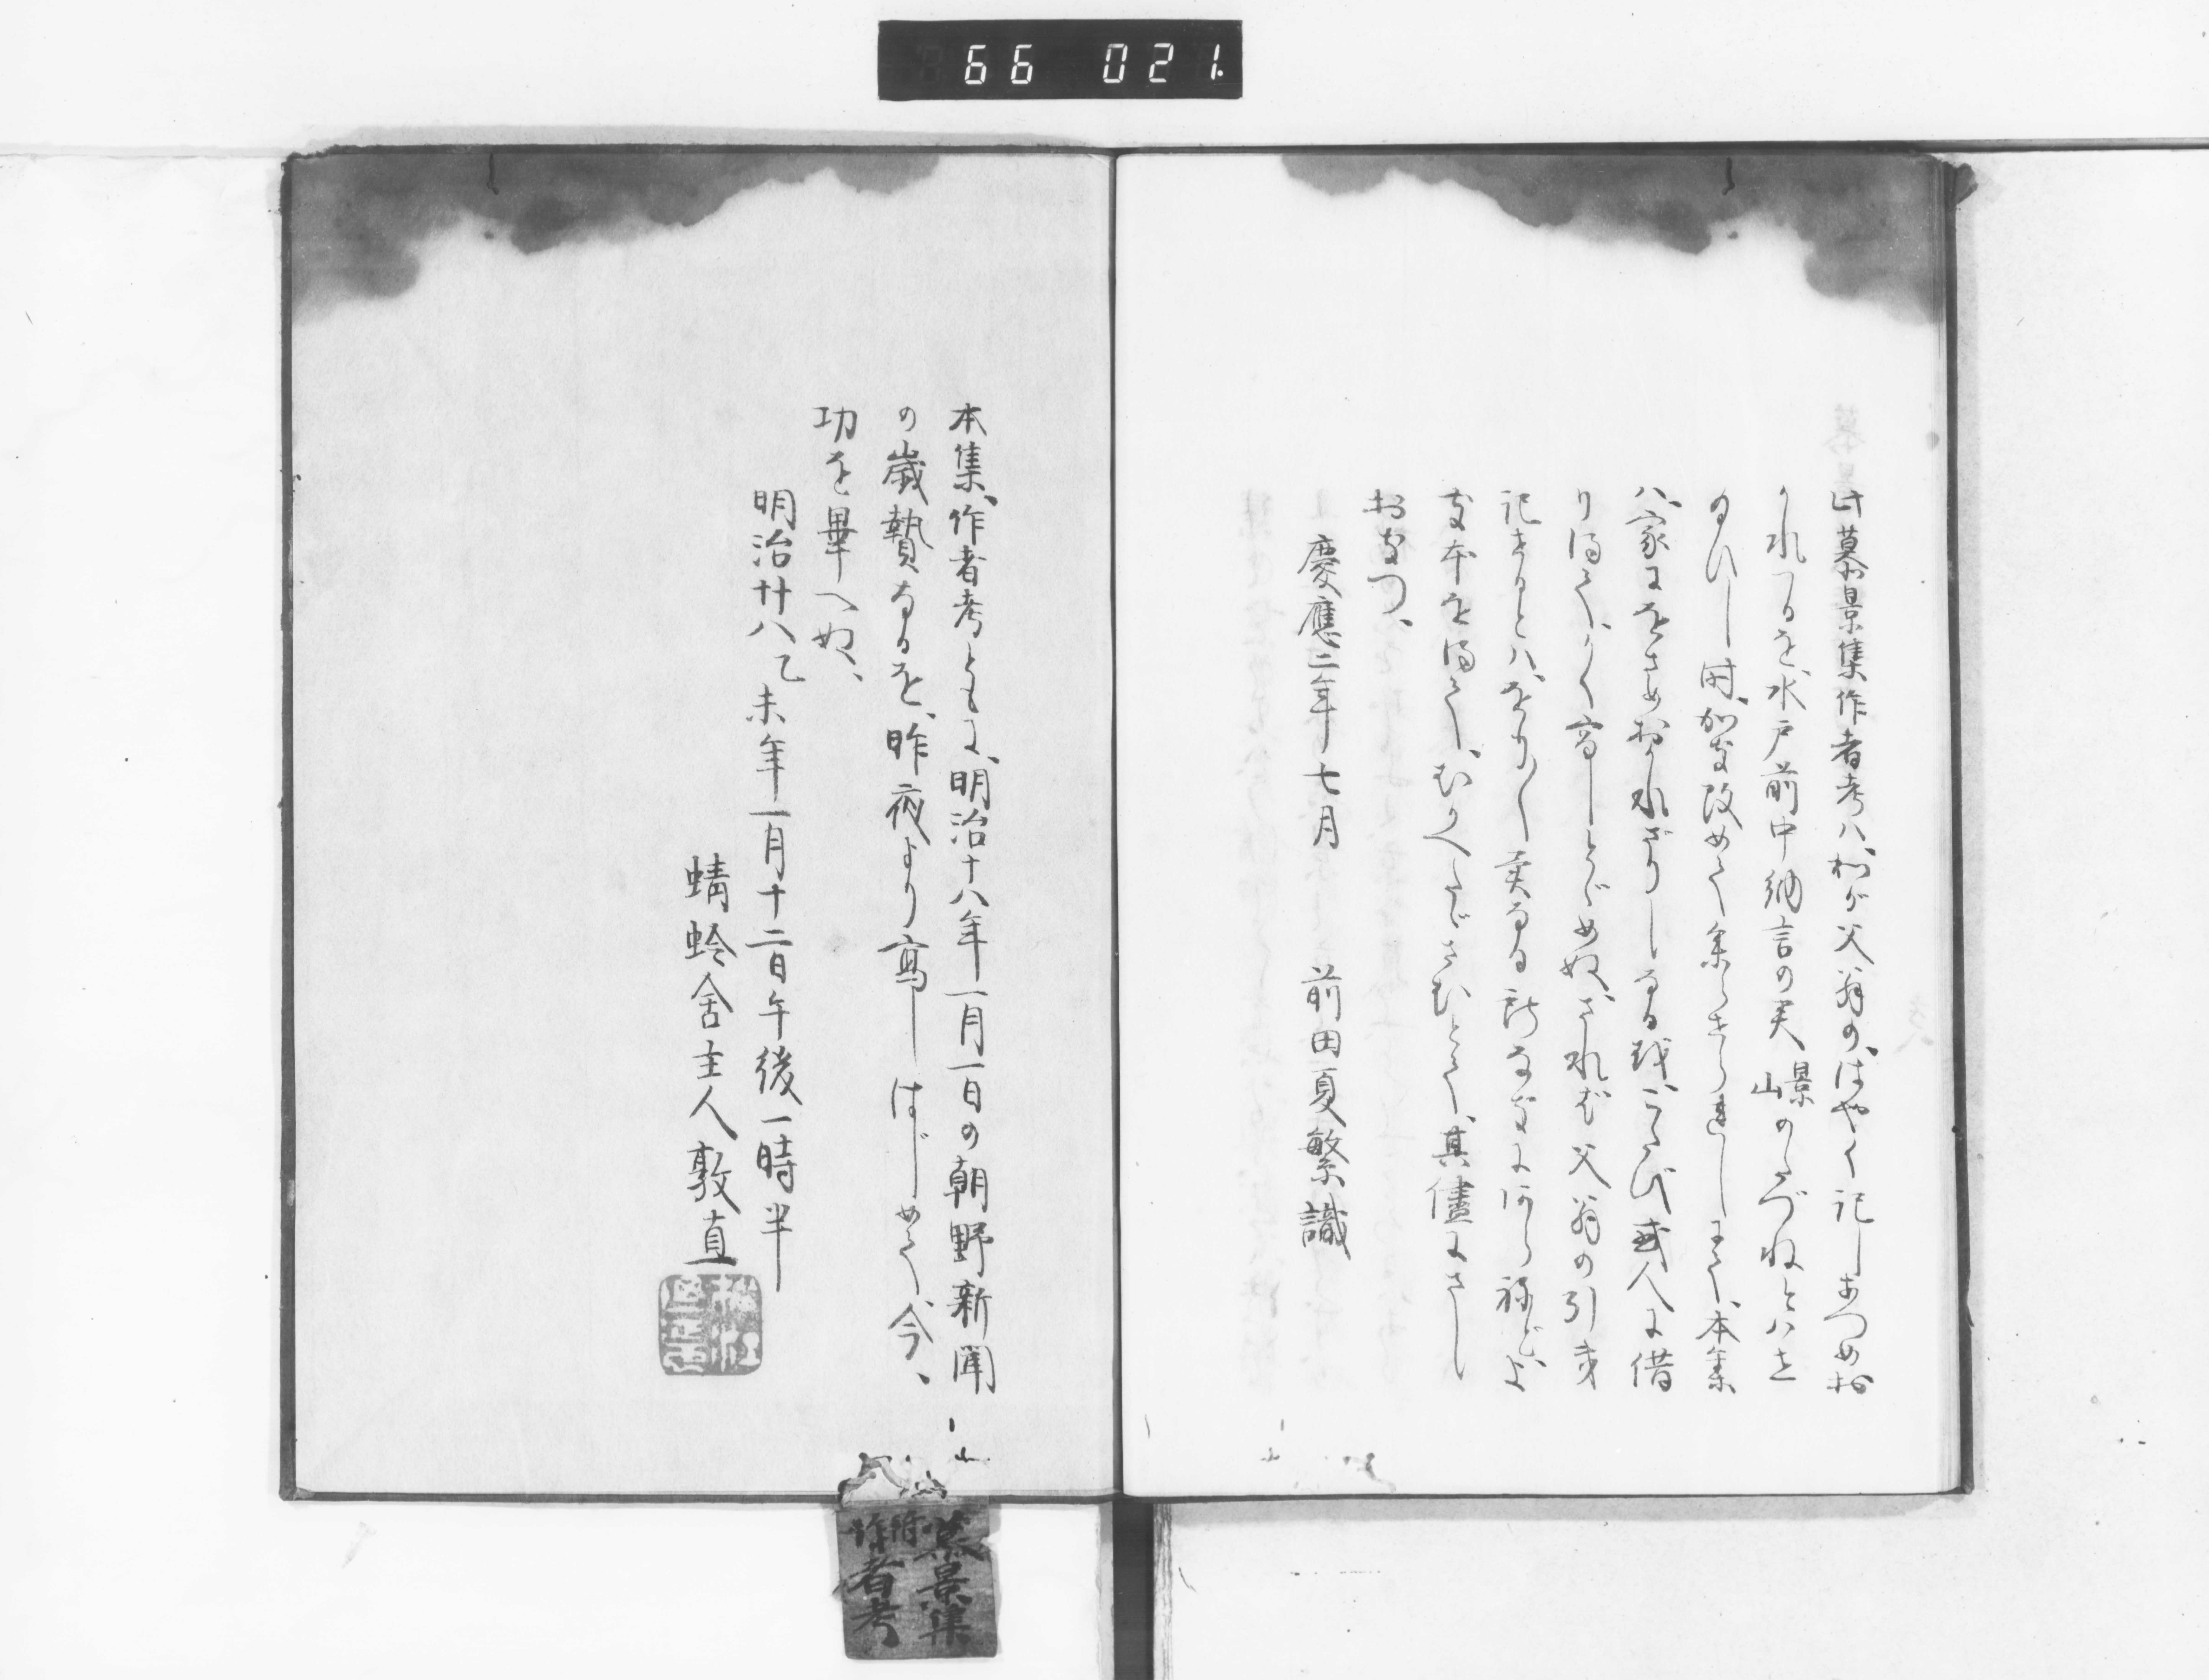 66 021
此慕景集作者考ハ、我が父翁の、はやく記しあつめお
かれつるを、水戸前中納言の君 景山 のたづねとハせ
給ひし時、かき改めて奉らせられしにて、本集
ハ、家にをさめおかれざりしなるを、こたび或人に借
り得て、かく寫しとゞめぬ、されば父翁の引き
記せるとハ、をり〳〵異なる所なきにあらねど、よ
き本を得て、むかへたゞさむとて、其儘にさし
おきつ、
慶應二年七月 前田夏繁識
本集、作者考ともに、明治十八年一月一日の朝野新聞
の歳贄なるを、昨夜より寫しはじめて、今、
功を畢へぬ、
明治廿八乙未年一月十二日午後一時半
蜻蛉舍主人敦直
慕景集
附作者考